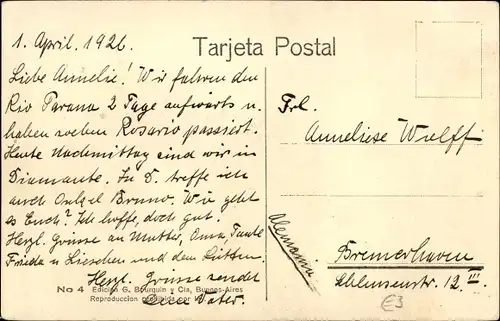 1. April. 1926.
Tarjeta Postal
Liebe Annelie! Wir fahren den
Rio Parana 2 Tage aufwärts u.
haben soeben Rosario passiert.
Heute Nachmittag sind wir in
Diamante. In D. treffe ich
auch Onkel Bruno. Wie geht
es Euch? Ich hoffe, doch gut.
Herzl. Grüsse an Mutter, Oma, Tante
Frieda u Lieschen und dem Lütten.
Herzl. Grüsse sendet
Dein Vater.
No 4 Edicion G. Bourquin y Cia, Buenos-Aires
Reproduccion prohibida por
Frl.
Anneliese Wulff
Alemania
Bremerhaven
Schleusenstr. 12 III
€3